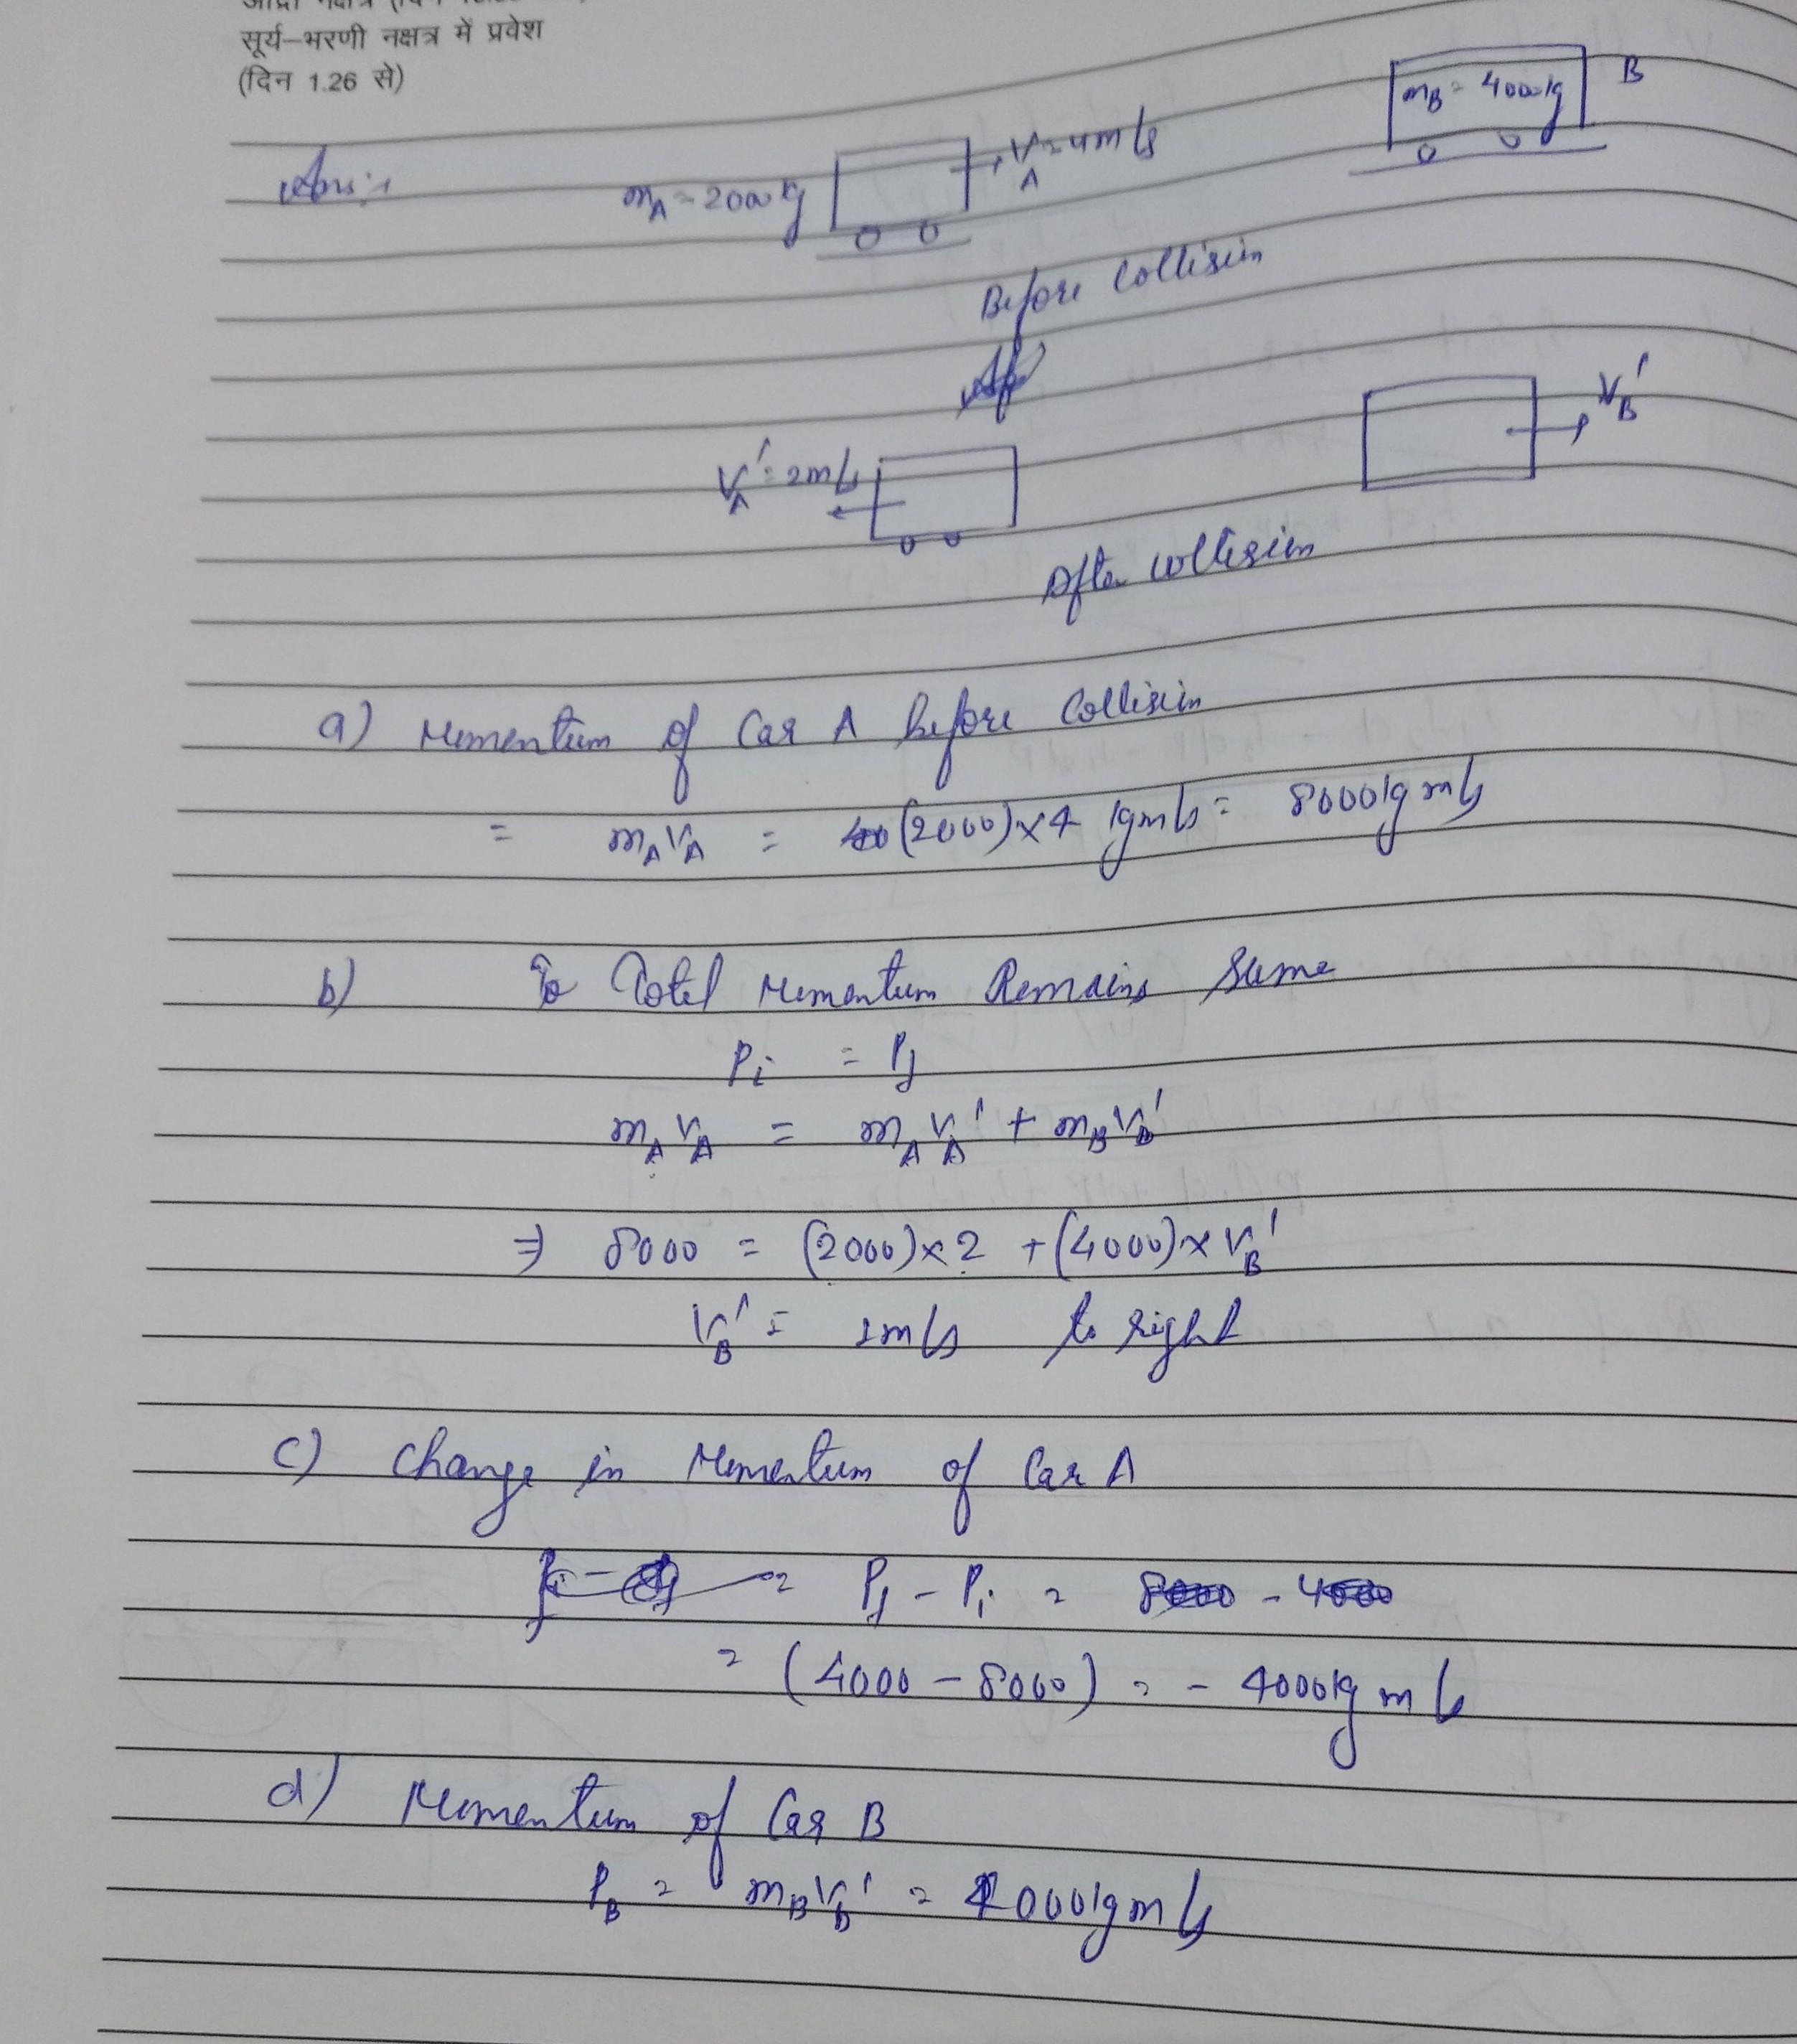 सूर्य–भरणी नक्षत्र में प्रवेश
(दिन 1.26 से)
Ans:-
mA = 2000kg
VA = 4m/s
mB = 4000kg
B
Before Collision
VA' = 2m/s
VB'
After collision
a) Momentum of Car A before Collision
= mAVA = (2000)×4 kgm/s = 8000kg m/s
b) Total Momentum Remains Same
Pi = Pf
mAVA = mAVA' + mBVB'
⇒ 8000 = (2000)×2 + (4000)×VB'
VB' = 1m/s to right
c) Change in Momentum of Car A
= Pf - Pi = 8000 - 4000
= (4000 - 8000) = - 4000kg m/s
d) Momentum of Car B
PB = mBVB' = 4000kgm/s